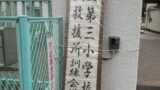 第三小学校
救援所訓練会